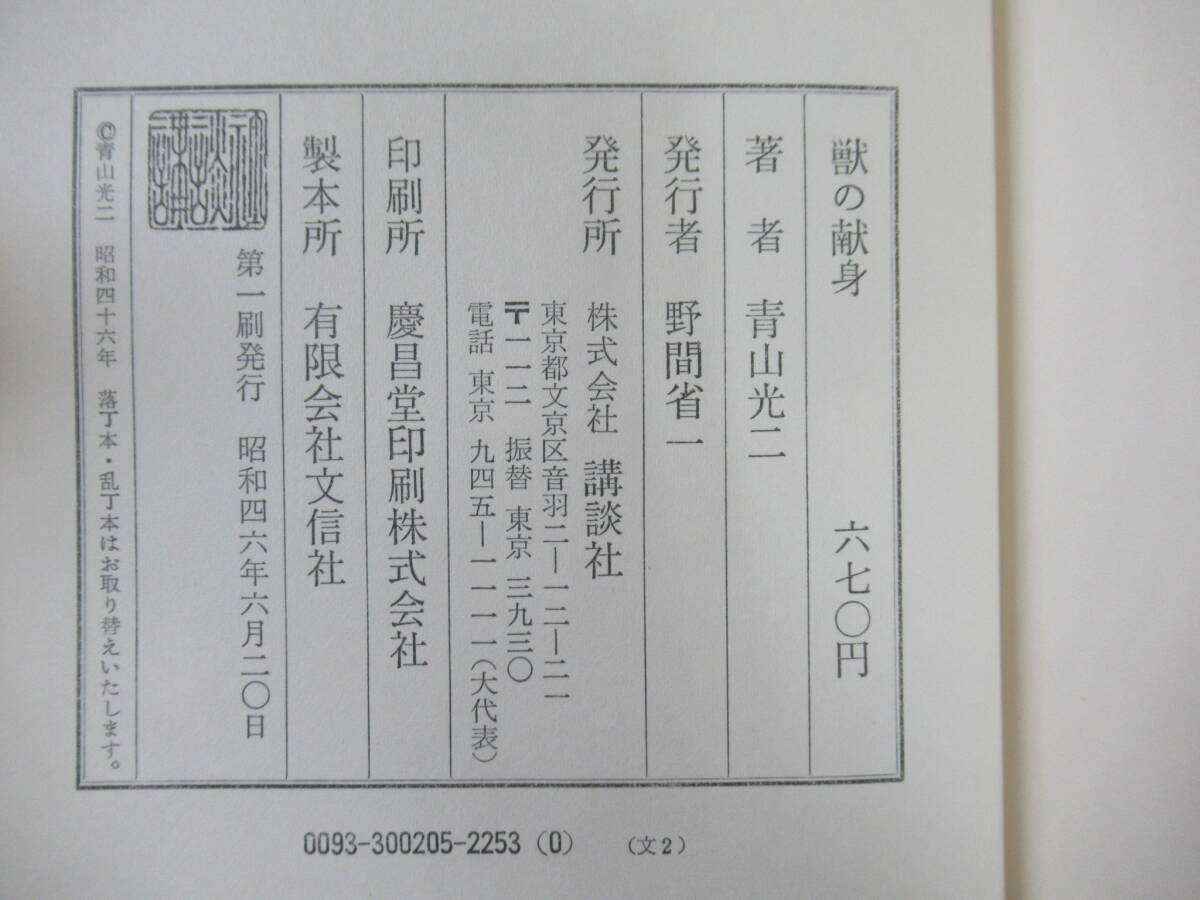 獣の献身 六七〇円
著者 青山光二
発行者 野間省一
発行所 株式会社 講談社
東京都文京区音羽二―一二―二一
〒一一二 振替 東京 三九三〇
電話 東京 九四五―一一一一(大代表)
印刷所 慶昌堂印刷株式会社
製本所 有限会社文信社
第一刷発行 昭和四六年六月二〇日
©青山光二 昭和四十六年 落丁本・乱丁本はお取り替えいたします。
0093-300205-2253 (0) (文2)